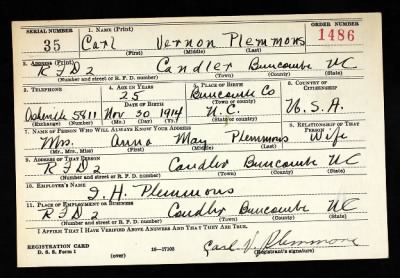 SERIAL NUMBER 1. NAME (Print) ORDER NUMBER
35 Carl Vernon Plemmons 1486
(First) (Middle) (Last)
2. ADDRESS (Print)
RFD 2 Candler Buncombe NC
(Number and street or R. F. D. number) (Town) (County) (State)
3. TELEPHONE 4. AGE IN YEARS 5. PLACE OF BIRTH 6. COUNTRY OF CITIZENSHIP
25 Buncombe Co
DATE OF BIRTH (Town or county)
Asheville 5911 Nov 30 1914 N.C. U.S.A.
(Exchange) (Number) (Mo.) (Day) (Yr.) (State or country)
7. NAME OF PERSON WHO WILL ALWAYS KNOW YOUR ADDRESS 8. RELATIONSHIP OF THAT PERSON
Mrs. Anna May Plemmons Wife
(Mr., Mrs., Miss) (First) (Middle) (Last)
9. ADDRESS OF THAT PERSON
RFD 2 Candler Buncombe NC
(Number and street or R. F. D. number) (Town) (County) (State)
10. EMPLOYER'S NAME
J. H. Plemmons
11. PLACE OF EMPLOYMENT OR BUSINESS
RFD 2 Candler Buncombe NC
(Number and street or R. F. D. number) (Town) (County) (State)
I AFFIRM THAT I HAVE VERIFIED ABOVE ANSWERS AND THAT THEY ARE TRUE.
REGISTRATION CARD Carl V. Plemmons
D. S. S. Form 1 (over) 16—17105 (Registrant's signature)